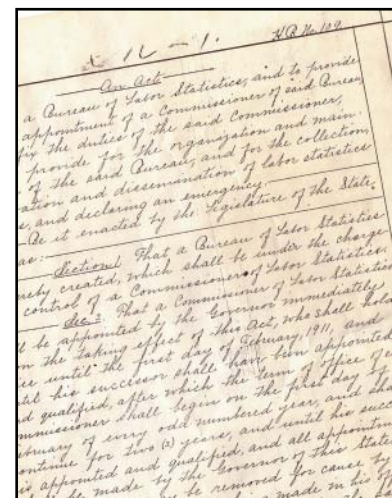 H.B. No. 109
An Act
a Bureau of Labor Statistics, and to provide
appointment of a Commissioner of said Bureau,
fix the duties of the said Commissioner,
provide for the organization and main-
of the said Bureau, and for the collection,
ation and dissemination of labor statistics
s, and declaring an emergency.
Be it enacted by the Legislature of the State
as:
Section 1. That a Bureau of Labor Statistics
reby created, which shall be under the charge
control of a Commissioner of Labor Statistics.
Sec. 2. That a Commissioner of Labor Statistics
ll be appointed by the Governor immediately
on the taking effect of this Act, who shall hold
ice until the first day of February, 1911, and
til his successor shall have been appointed
d qualified, after which the term of office of
mmissioner shall begin on the first day of
bruary of every odd numbered year, and shall
ontinue for two (2) years, and until his succ
is appointed and qualified, and all appointm
be made by the Governor of this State
be removed for cause by
made in his